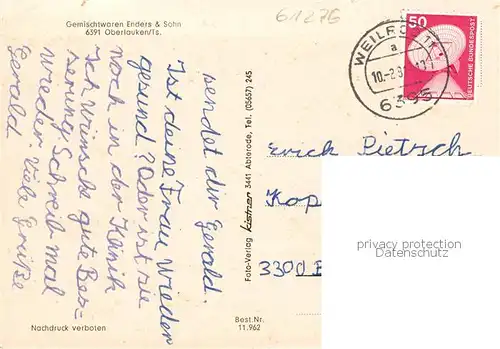 Gemischtwaren Enders & Sohn
6391 Oberlauken/Ts.
61276
50
DEUTSCHE BUNDESPOST
WEILROD
a
10.-2.8
6395
sendet dir Gerald.
Ist deine Frau wieder
gesund? Oder ist sie
noch in der Klinik
Ich wünsche gute Bes-
serung. Schreib mal
wieder Viele Grüße
Gerald
Foto-Verlag Kistner 3441 Abterode, Tel. (05657) 245
Erich Pietsch
Kap
3300 B
privacy protection
Datenschutz
Nachdruck verboten
Best.Nr.
11.962